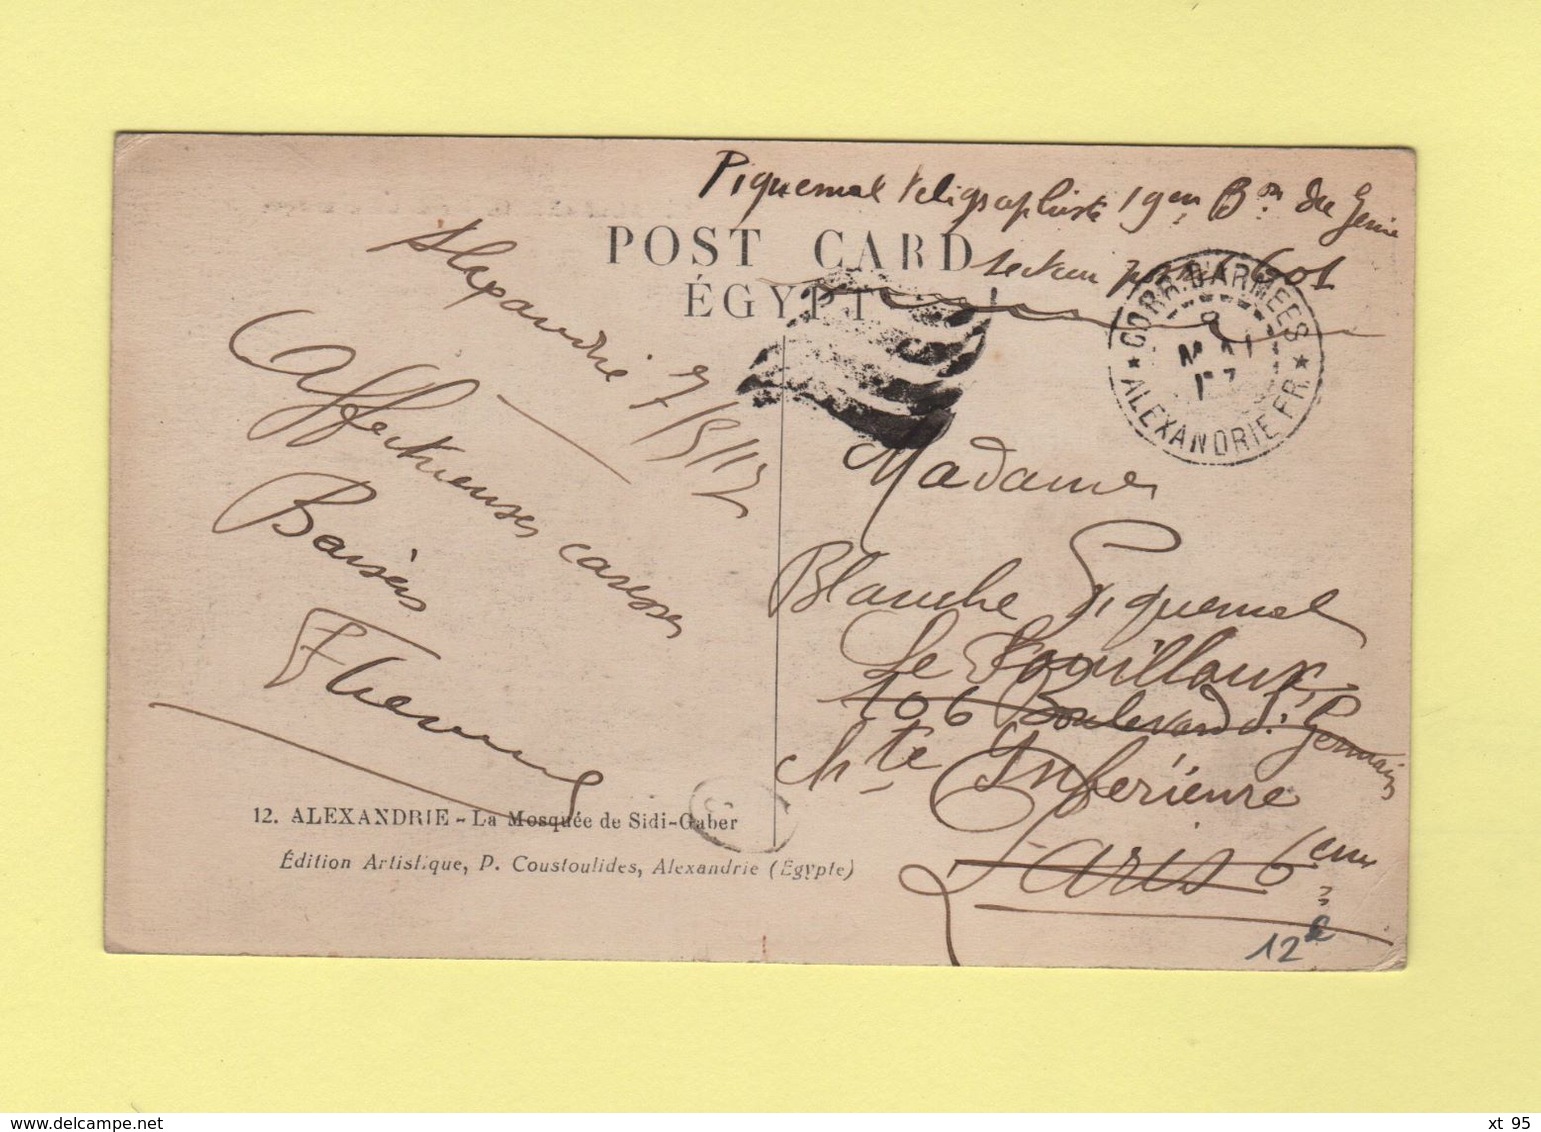 Piquemal télégraphiste 19em Bon du Génie
secteur postal 601
POST CARD
ÉGYPT
CORR. D'ARMEES
ALEXANDRIE FR.
MAI
Alexandrie 7/5/17
Affectueuses caresses
Baisers
Madame
Blanche Piquemal
Le Fouilloux
106 Boulevard St Germain
Chte Inférieure
Paris 6em
12. ALEXANDRIE - La Mosquée de Sidi-Gaber
Édition Artistique, P. Coustoulides, Alexandrie (Egypte)
12e
www.delcampe.net
xt 95